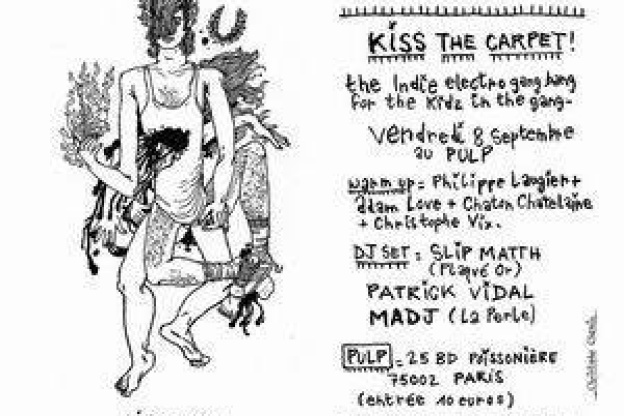 KiSS THE CARPET!
the Indie electro gang bang
for the Kidz in the gang-
Vendredi 8 Septembre
au PULP
warm up = Philippe Laugier +
Adam Love + Chaton Chatelaine
+ Christophe Vix.
DJ SET = SLIP MATTH
(Plaqué Or)
PATRICK VIDAL
MADJ (La Perle)
PULP - 25 BD POISSONIÈRE
75002 PARIS
(entrée 10 euros)